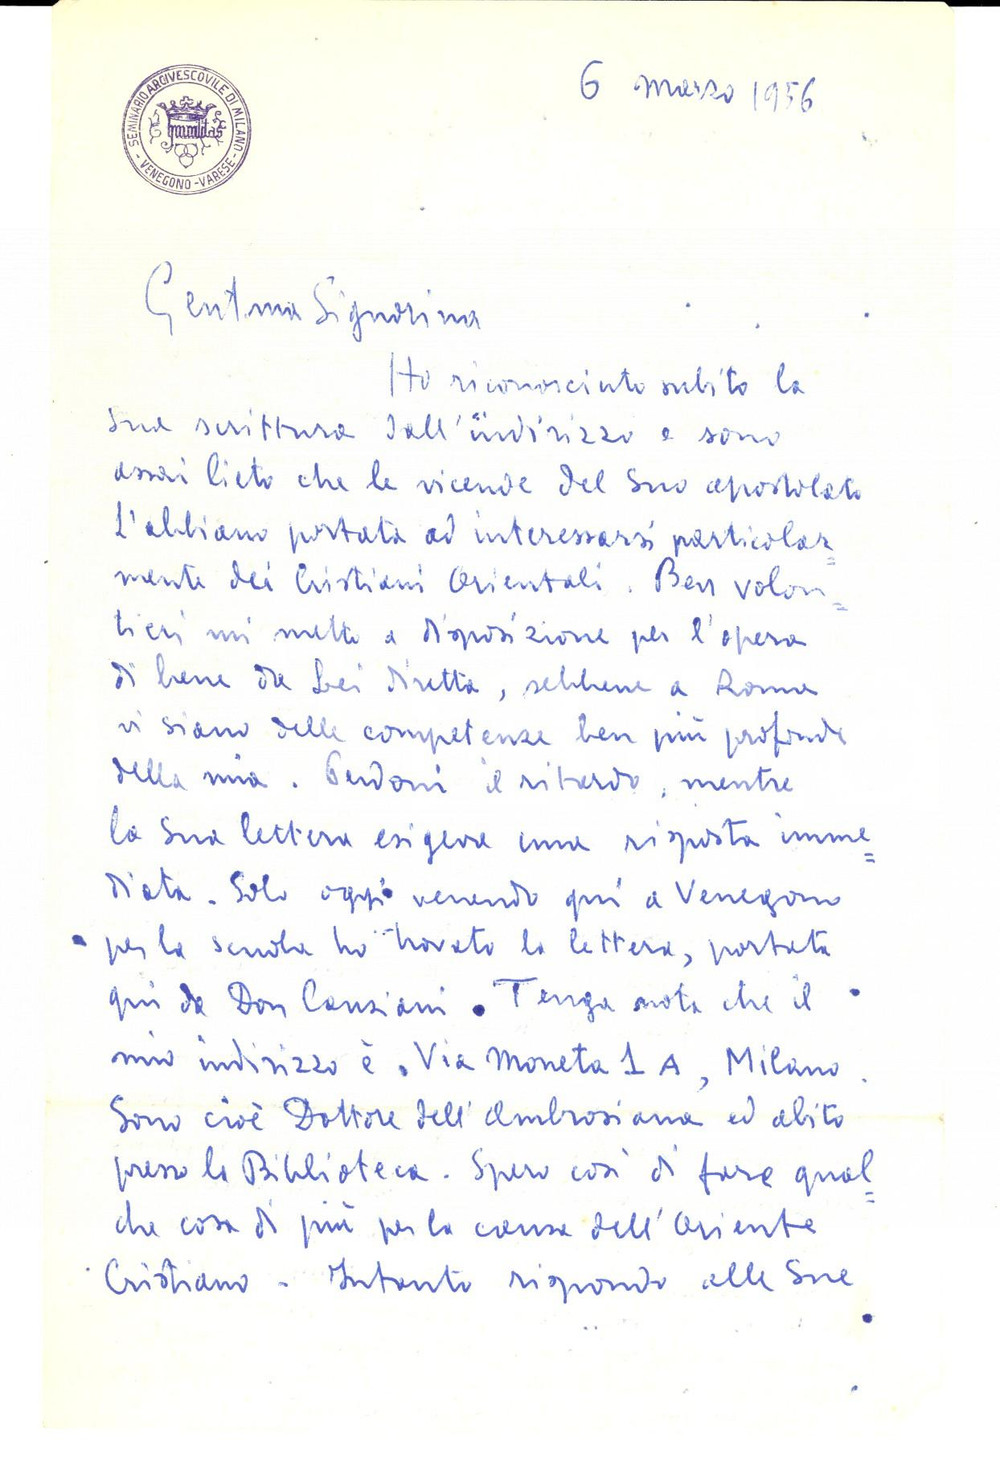 SEMINARIO ARCIVESCOVILE DI MILANO
humilitas
- VENEGONO - VARESE -
6 marzo 1956
Gent.ma Signorina
Ho riconosciuto subito la
Sua scrittura dall'indirizzo e sono
assai lieto che le vicende del Suo apostolato
L'abbiano portata ad interessarsi particolar=
mente dei Cristiani Orientali. Ben volon=
tieri mi metto a disposizione per l'opera
di bene da Lei diretta, sebbene a Roma
vi siano delle competenze ben più profonde
della mia. Perdoni il ritardo, mentre
la Sua lettera esigeva una risposta imme=
diata. Solo oggi venendo qui a Venegono
per la scuola ho trovato la lettera, portata
qui da Don Canziani. Tenga nota che il
mio indirizzo è. Via Moneta 1 A, Milano.
Sono cioè Dottore dell'Ambrosiana ed abito
presso la Biblioteca. Spero così di fare qual=
che cosa di più per la causa dell'Oriente
Cristiano. Intanto rispondo alle Sue